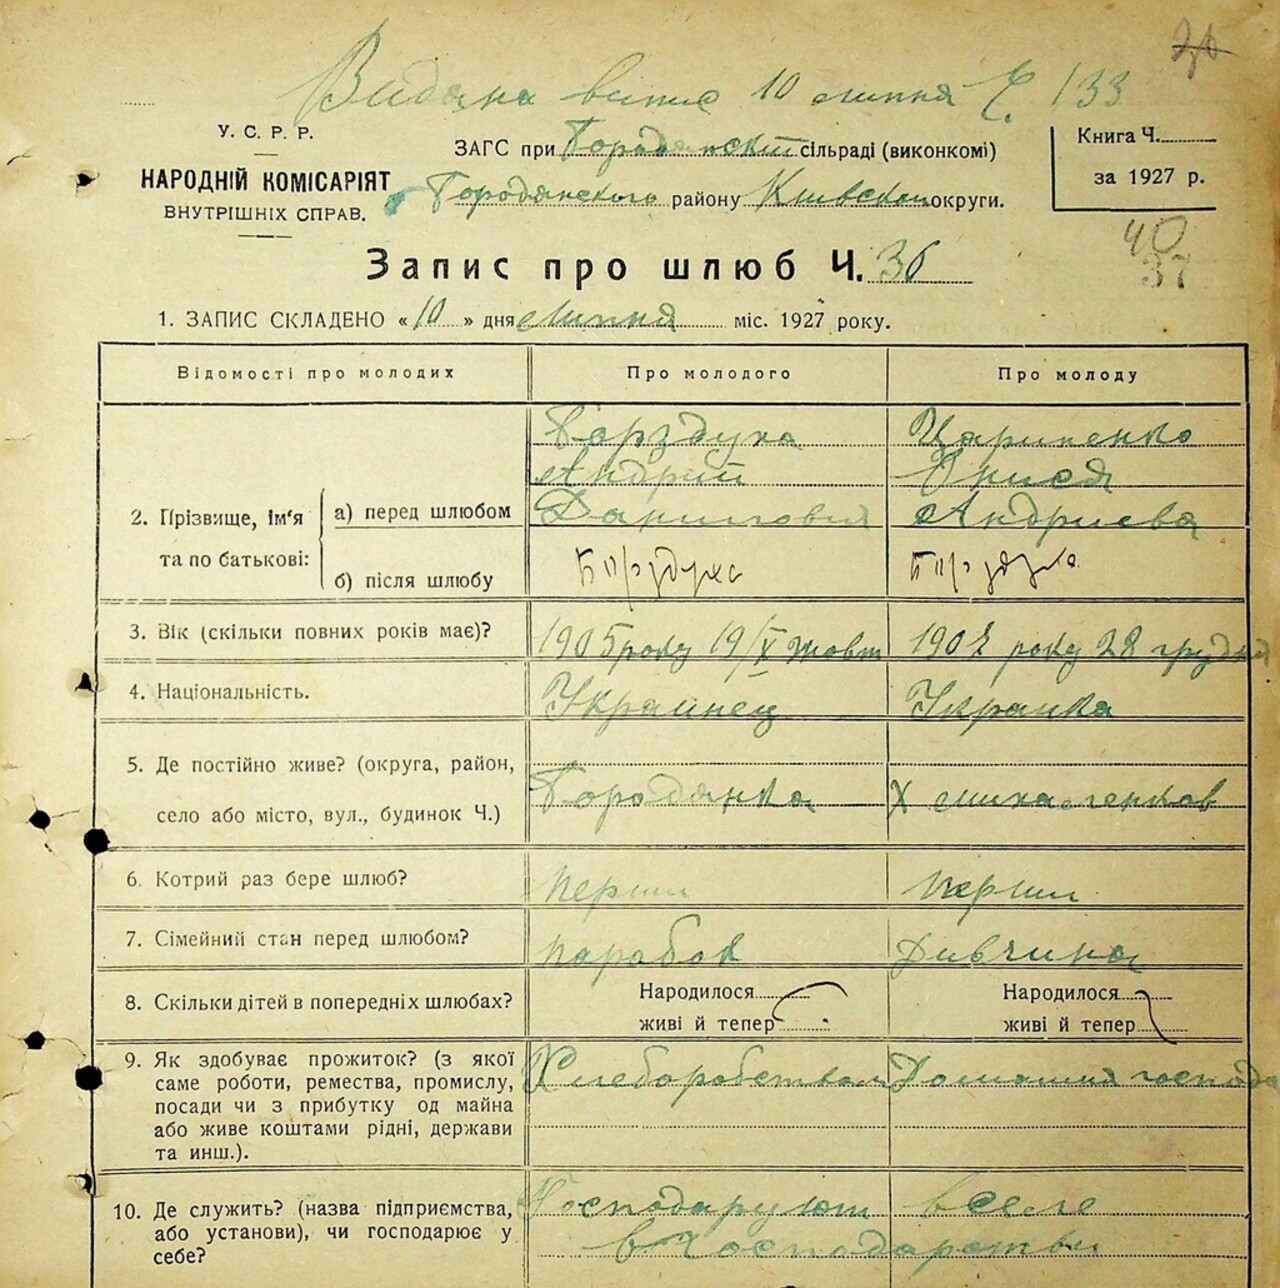 26
Видана випис 10 липня Ч. 133
У. С. Р. Р.
НАРОДНІЙ КОМІСАРІЯТ
ВНУТРІШНІХ СПРАВ.
ЗАГС при сільраді (виконкомі)
Бородянского району Киівскои округи.
Книга Ч.
за 1927 р.
40
37
Запис про шлюб Ч. 36
1. ЗАПИС СКЛАДЕНО «10» дня липня міс. 1927 року.
Відомості про молодих
Про молодого
Про молоду
2. Прізвище, ім'я та по батькові:
а) перед шлюбом
б) після шлюбу
Борздуха
Андрій
Данилович
Борздуха
Онися
Андриєва
3. Вік (скільки повних років має)?
1905 року 19/X жовт
року 28 грудня
4. Національність.
Украйнец
Украінка
5. Де постійно живе? (округа, район,
село або місто, вул., будинок Ч.)
Бородянка
Х михаленков
6. Котрий раз бере шлюб?
перши
перши
7. Сімейний стан перед шлюбом?
парабок
Дивчина
8. Скільки дітей в попередніх шлюбах?
Народилося
живі й тепер
Народилося
живі й тепер
9. Як здобуває прожиток? (з якої
саме роботи, ремества, промислу,
посади чи з прибутку од майна
або живе коштами рідні, держави
та инш.).
Хлеборобством
Домашня господа
10. Де служить? (назва підприємства,
або установи), чи господарює у
себе?
Господарують вселе
в господарстви